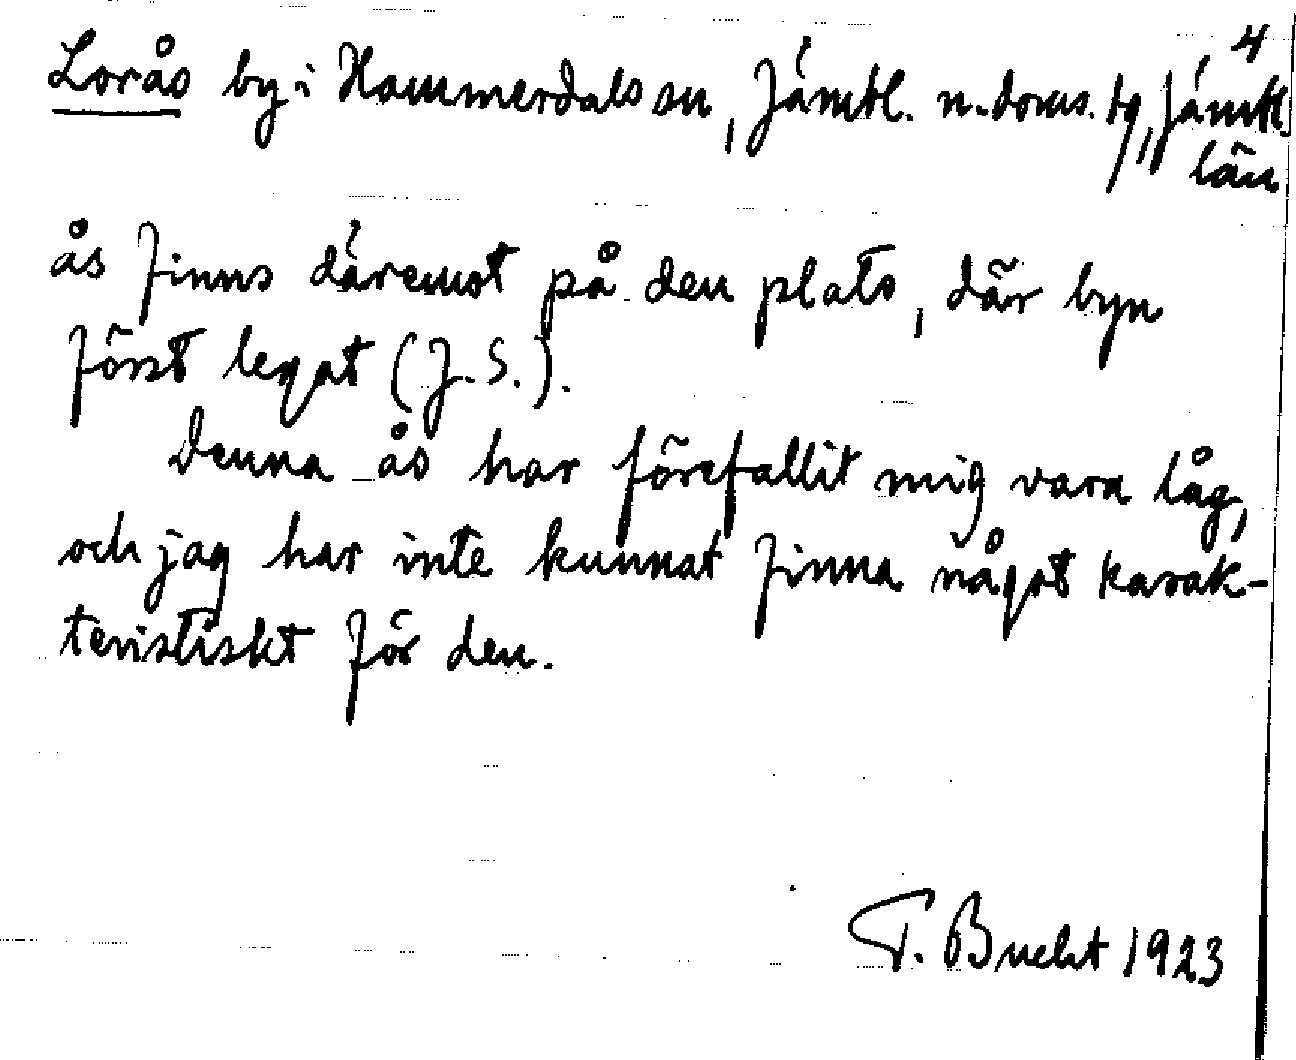 4
Lorås by i Hammerdals sn, Jämtl. n. doms. tg, Jämtl.
län
ås finns däremot på den plats, där byn
först legat (J. S.).
Denna ås har förefallit mig vara låg,
och jag har inte kunnat finna något karak-
teristiskt för den.
T. Bucht 1923